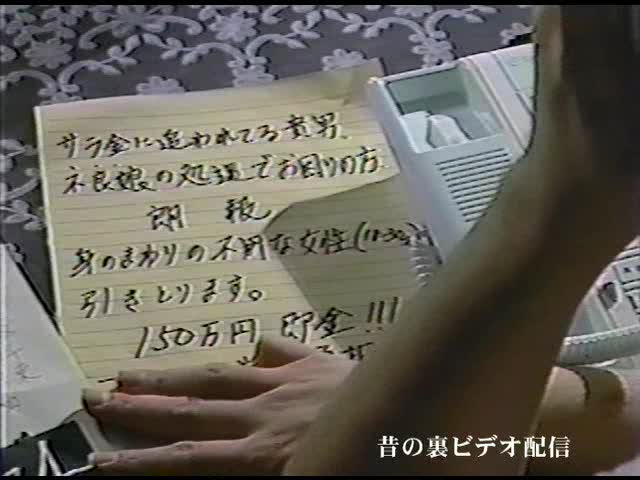 サラ金に追われてる貴男、
不良娘の処理でお困りの方、
朗報
身のまわりの不用な女性
引きとります。
150万円 即金!!!
昔の裏ビデオ配信